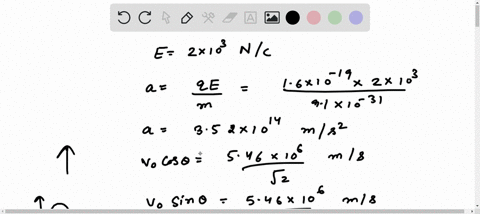 E = 2×10³ N/C
a = qE/m = 1.6×10⁻¹⁹ × 2×10³ / 9.1×10⁻³¹
a = 3.52×10¹⁴ m/s²
v₀ cosθ = 5.46×10⁶/√2 m/s
v₀ sinθ = 5.46×10⁶ m/s